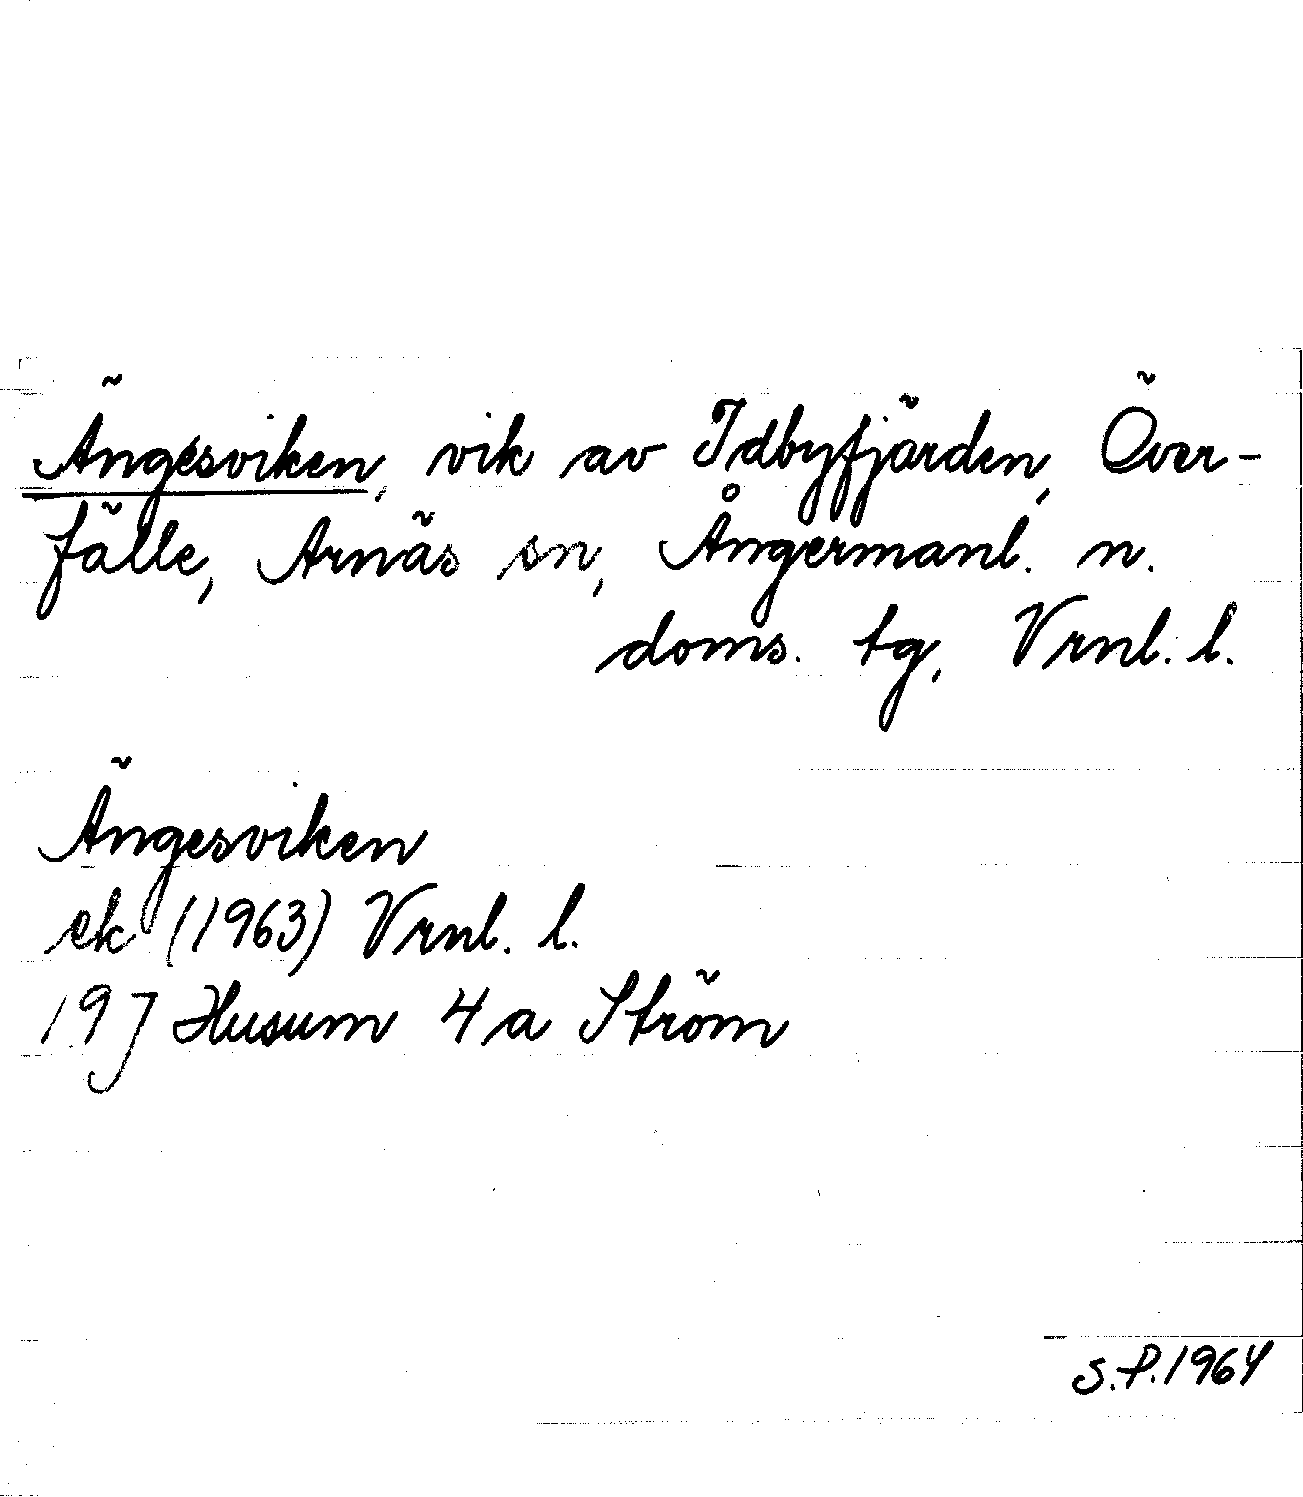 Ängesviken, vik av Idbyfjärden, Över-
fälle, Arnäs sn, Ångermanl. n.
doms. tg, Vrnl. l.
Ängesviken
ek (1963) Vrnl. l.
19J Husum 4a Ström
S.P.1964